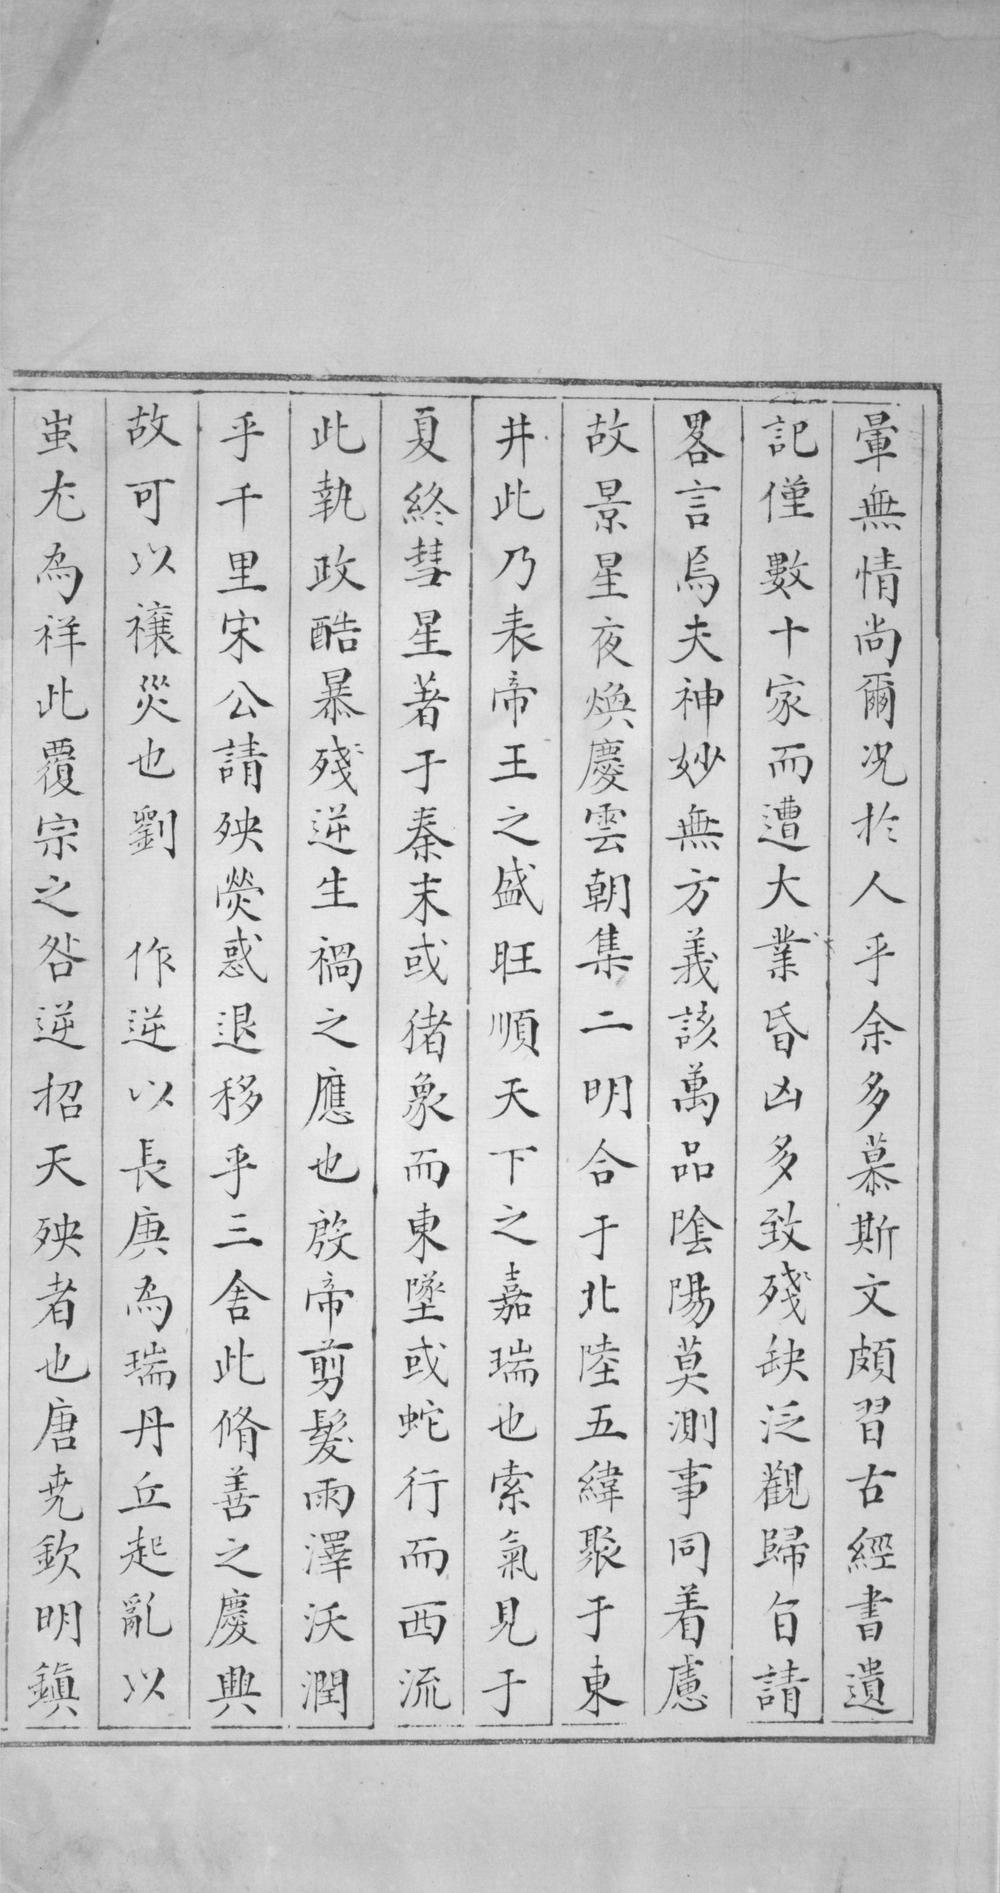 暈無情尚爾况於人乎余多慕斯文頗習古經書遺
記僅數十家而遭大業昏凶多致殘缺泛觀歸旨請
畧言焉夫神妙無方義該萬品陰陽莫測事同着慮
故景星夜煥慶雲朝集二明合于北陸五緯聚于東
井此乃表帝王之盛旺順天下之嘉瑞也索氣見于
夏終彗星著于秦末或猪象而東墜或蛇行而西流
此執政酷暴殘逆生禍之應也殷帝剪髮雨澤沃潤
乎千里宋公請殃熒惑退移乎三舍此脩善之慶興
故可以禳災也劉　作逆以長庚為瑞丹丘起亂以
蚩尤為祥此覆宗之咎逆招天殃者也唐堯欽明鎮